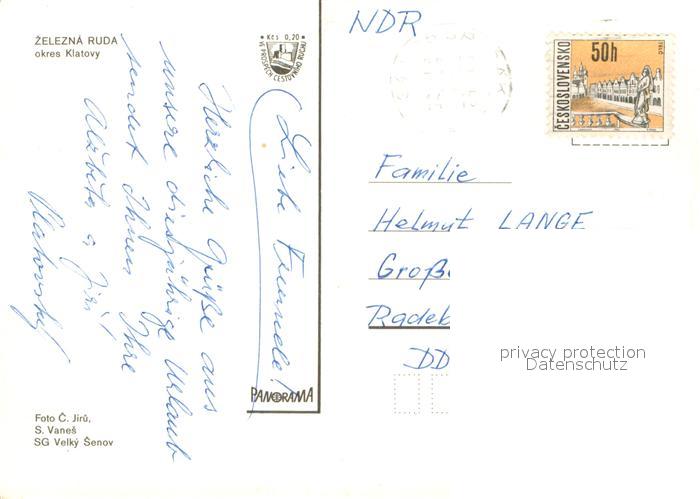 ŽELEZNÁ RUDA
okres Klatovy
Kčs 0,20
VE PROSPĚCH CESTOVNÍHO RUCHU
Liebe Freunde!
Herzliche Grüße aus
unsere diesjährige Urlaub
sendet Ihnen Ihre
Alžběta a Jiří
Klatovský
PANORAMA
Foto Č. Jirů,
S. Vaneš
SG Velký Šenov
NDR
ČESKOSLOVENSKO
50h
TELČ
Familie
Helmut LANGE
Groß
Radeb
DD
privacy protection
Datenschutz